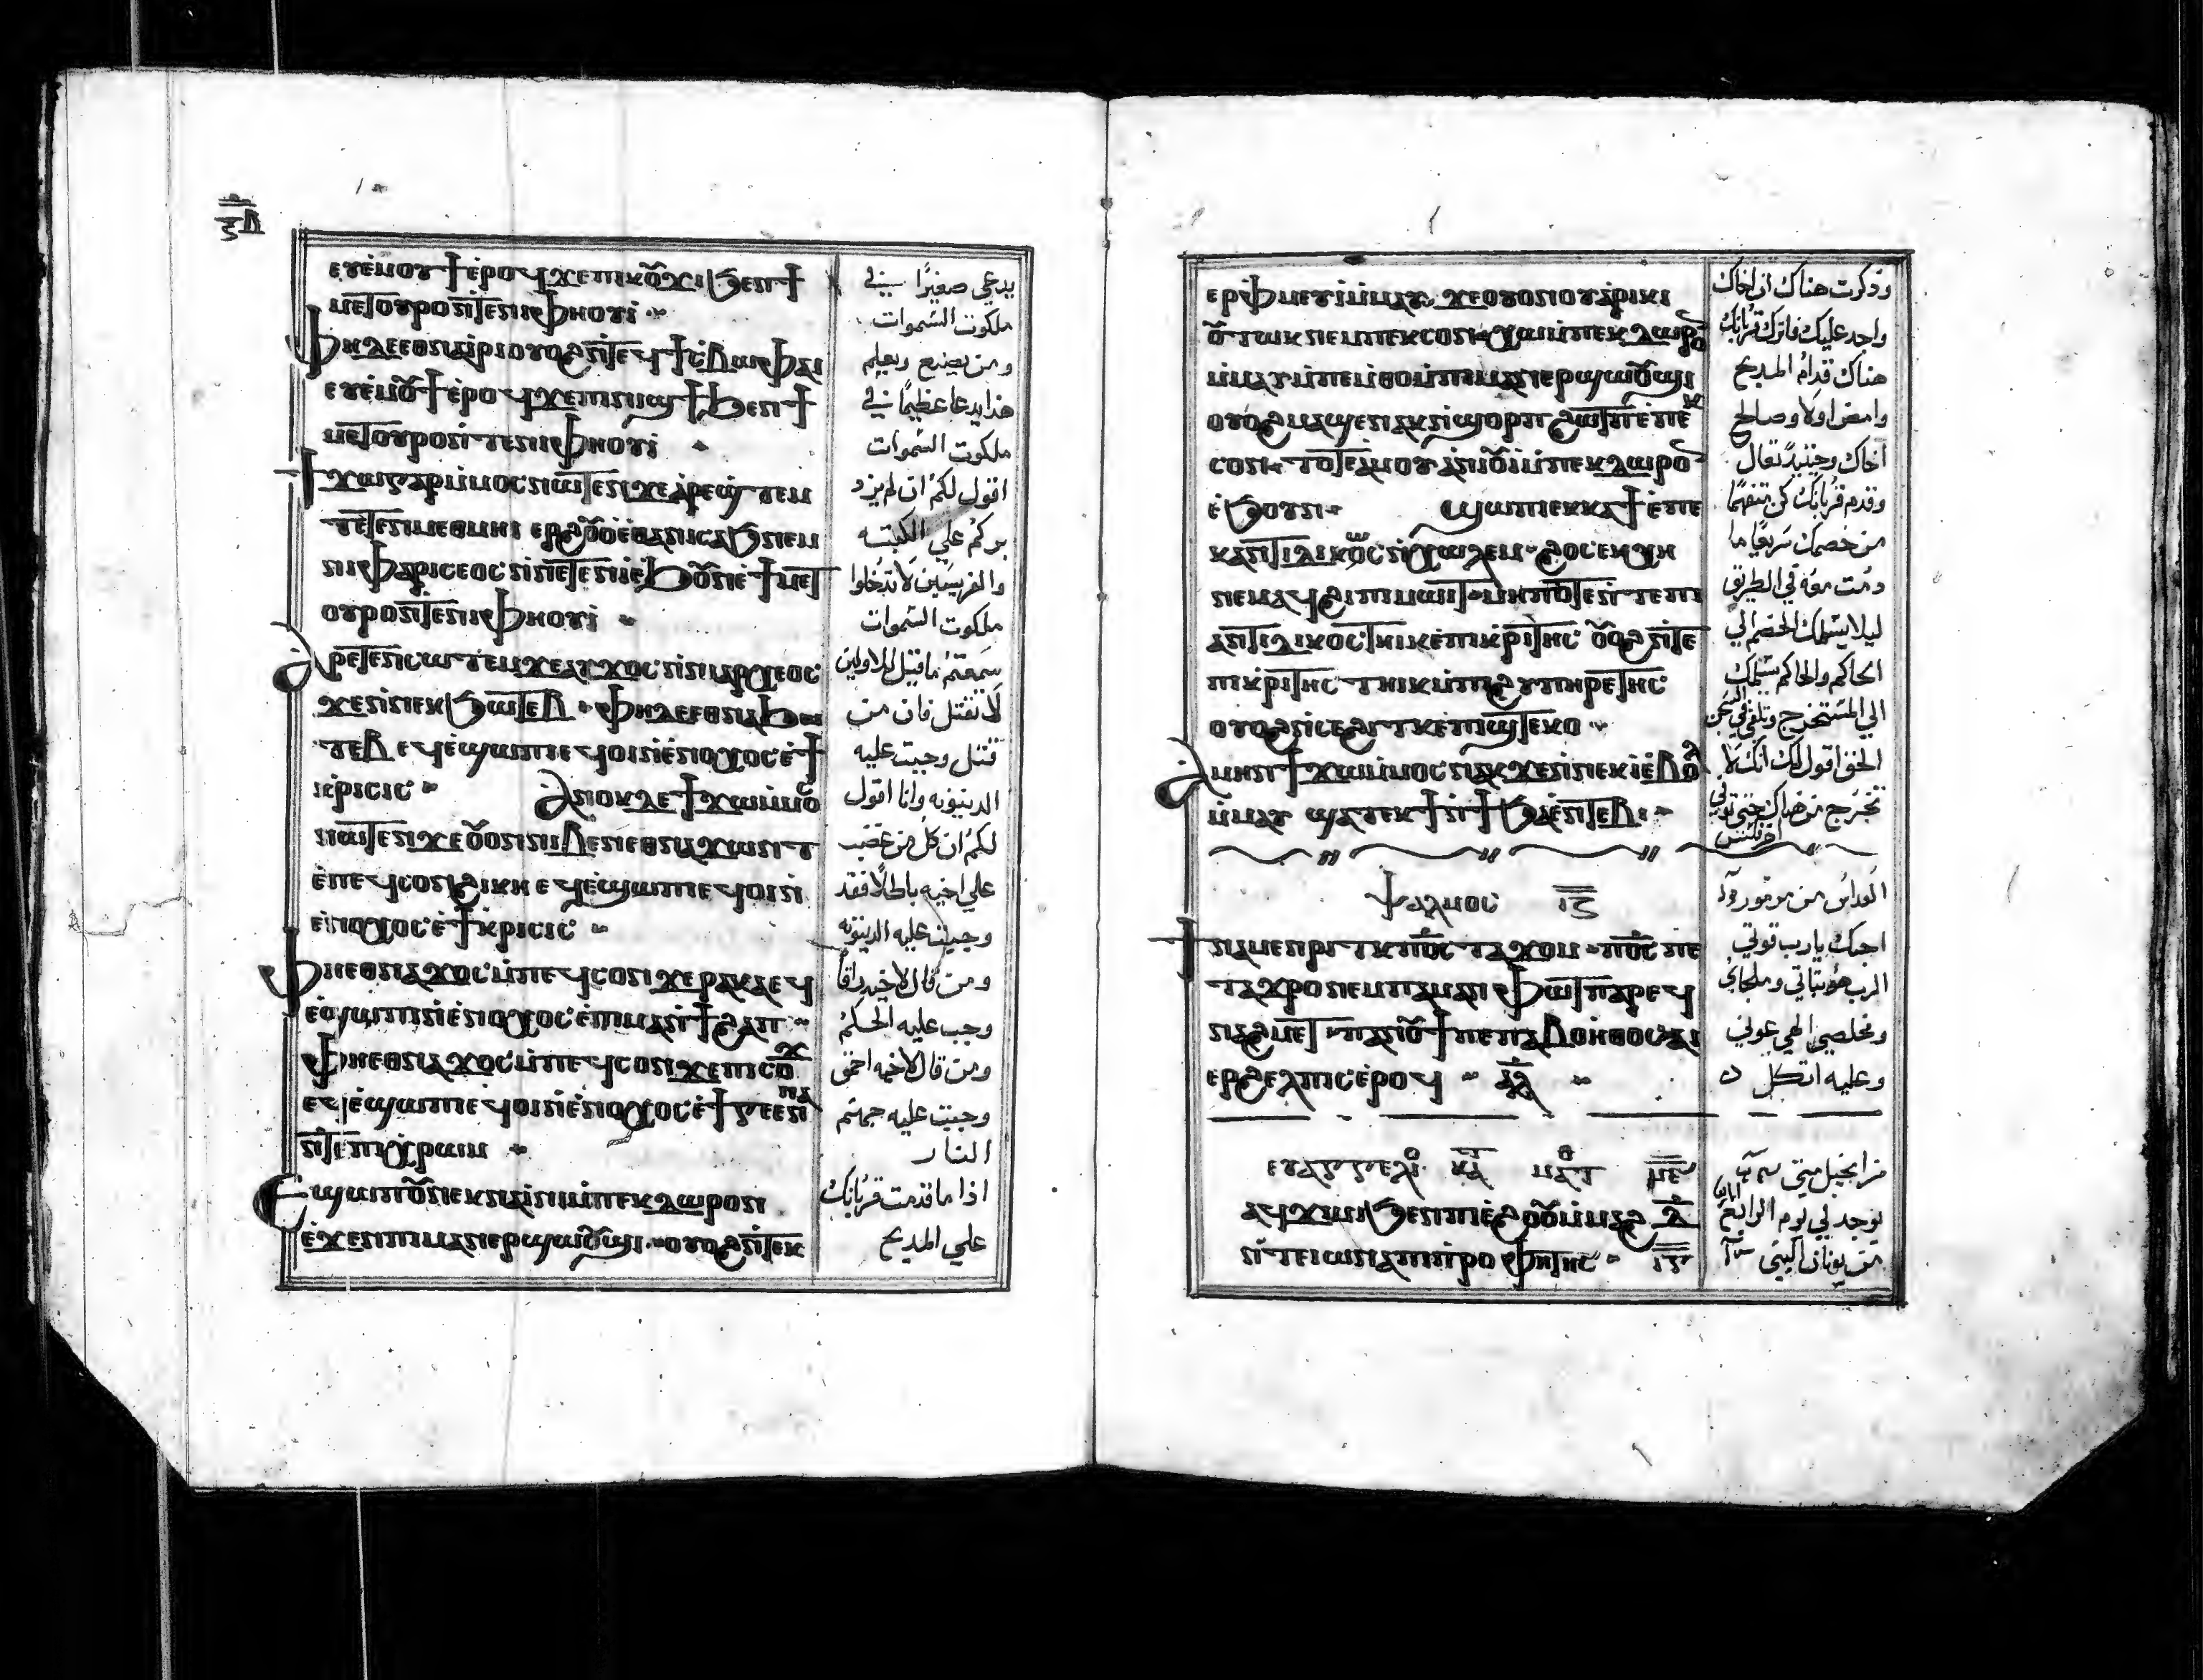 ⲝⲃ
ⲉⲩⲉ̀ⲙⲟⲩϯ ⲉ̀ⲣⲟϥ ϫⲉ ⲡⲓⲕⲟⲩϫⲓ ϧⲉⲛ ϯ
ⲙⲉⲧⲟⲩⲣⲟ ⲛ̀ⲧⲉ ⲛⲓⲫⲏⲟⲩⲓ
ⲫⲏ ⲇⲉ ⲉⲑⲛⲁⲓⲣⲓ ⲟⲩⲟϩ ⲛ̀ⲧⲉϥϯⲥⲃⲱ ⲫⲁⲓ
ⲉⲩⲉ̀ⲙⲟⲩϯ ⲉ̀ⲣⲟϥ ϫⲉ ⲡⲓⲛⲓϣϯ ϧⲉⲛ ϯ
ⲙⲉⲧⲟⲩⲣⲟ ⲛ̀ⲧⲉ ⲛⲓⲫⲏⲟⲩⲓ
ϯϫⲱ ⲅⲁⲣ ⲙ̀ⲙⲟⲥ ⲛⲱⲧⲉⲛ ϫⲉ ⲁⲣⲉϣⲧⲉⲙ
ⲧⲉⲧⲉⲛⲙⲉⲑⲙⲏⲓ ⲉⲣϩⲟⲩⲟ̀ ⲉ̀ⲑⲁ ⲛⲓⲥⲁϧ ⲛⲉⲙ
ⲛⲓⲫⲁⲣⲓⲥⲉⲟⲥ ⲛ̀ⲛⲉⲧⲉⲛⲓ̀ ⲉ̀ϧⲟⲩⲛ ⲉ̀ϯⲙⲉⲧ
ⲟⲩⲣⲟ ⲛ̀ⲧⲉ ⲛⲓⲫⲏⲟⲩⲓ
ⲁⲣⲉⲧⲉⲛⲥⲱⲧⲉⲙ ϫⲉ ⲁⲩϫⲟⲥ ⲛ̀ⲛⲓⲁⲣⲭⲉⲟⲥ
ϫⲉ ⲛ̀ⲛⲉⲕϧⲱⲧⲉⲃ ⲫⲏ ⲇⲉ ⲉⲑⲛⲁϧⲱ
ⲧⲉⲃ ⲉϥⲉ̀ϣⲱⲡⲓ ⲉϥⲟⲓ ⲛ̀ⲉ̀ⲛⲟⲭⲟⲥ ⲉ̀ϯ
ⲕⲣⲓⲥⲓⲥ ⲁⲛⲟⲕ ⲇⲉ ϯϫⲱ ⲙ̀ⲙⲟⲥ
ⲛⲱⲧⲉⲛ ϫⲉ ⲟⲩⲟⲛ ⲛⲓⲃⲉⲛ ⲉⲑⲛⲁϫⲱⲛⲧ
ⲉ̀ⲡⲉϥⲥⲟⲛ ϩⲓⲕⲏ ⲉϥⲉ̀ϣⲱⲡⲓ ⲉϥⲟⲓ ⲛ̀
ⲉⲛⲟⲭⲟⲥ ⲉ̀ϯⲕⲣⲓⲥⲓⲥ
ⲫⲏ ⲉⲑⲛⲁϫⲟⲥ ⲙ̀ⲡⲉϥⲥⲟⲛ ϫⲉ ⲣⲁⲕⲁ ⲉϥ
ⲉ̀ϣⲱⲡⲓ ⲛ̀ⲉ̀ⲛⲟⲭⲟⲥ ⲉ̀ⲡⲓⲙⲁⲛ̀ϯϩⲁⲡ
ⲫⲏ ⲉⲑⲛⲁϫⲟⲥ ⲙ̀ⲡⲉϥⲥⲟⲛ ϫⲉ ⲡⲓⲥⲟϫ
ⲉϥⲉ̀ϣⲱⲡⲓ ⲉϥⲟⲓ ⲛ̀ⲉ̀ⲛⲟⲭⲟⲥ ⲉ̀ϯⲅⲉⲉⲛⲛⲁ
ⲛ̀ⲧⲉ ⲡⲓⲭⲣⲱⲙ
ⲉϣⲱⲡ ⲟⲩⲛ ⲉⲕⲛⲁⲓ̀ⲛⲓ ⲙ̀ⲡⲉⲕⲇⲱⲣⲟⲛ
ⲉ̀ϫⲉⲛ ⲡⲓⲙⲁⲛⲉⲣϣⲱⲟⲩϣⲓ ⲟⲩⲟϩ ⲛ̀ⲧⲉⲕ
يدعي صغيرًا في
ملكوت السموات
ومن يصنع ويعلم
هذا يدعا عظيمًا في
ملكوت السموات
اقول لكم ان لم يزد
بركم علي الكتبه
والفريسيين لا تدخلوا
ملكوت السموات
سمعتم ما قيل للاولين
لا تقتل فان من
قتل وجبت عليه
الدينونه وانا اقول
لكم ان كل من غضب
علي اخيه باطلًا فقد
وجبت عليه الدينونه
ومن قال لاخيه راقا
وجب عليه الحكم
ومن قال لاخيه احمق
وجبت عليه جهنم
النار
اذا ما قدمت قربانك
علي المدبح
ⲉⲣⲫⲙⲉⲩⲓ̀ ⲙ̀ⲙⲁⲩ ϫⲉ ⲟⲩⲟⲛ ⲟⲩⲁⲣⲓⲕⲓ
ⲟⲩⲧⲱⲕ ⲛⲉⲙ ⲡⲉⲕⲥⲟⲛ ⲭⲱ ⲙ̀ⲡⲉⲕⲇⲱⲣⲟⲛ
ⲙ̀ⲙⲁⲩ ⲙ̀ⲡⲉⲙⲑⲟ ⲙ̀ⲡⲓⲙⲁⲛⲉⲣϣⲱⲟⲩϣⲓ
ⲟⲩⲟϩ ⲙⲁϣⲉⲛⲁⲕ ⲛ̀ϣⲟⲣⲡ ϩⲱⲧⲡ ⲉ̀ⲡⲉⲕ
ⲥⲟⲛ ⲧⲟⲧⲉ ⲁ̀ⲙⲟⲩ ⲁ̀ⲛⲓⲟⲩⲓ̀ ⲙ̀ⲡⲉⲕⲇⲱⲣⲟⲛ
ⲉ̀ϧⲟⲩⲛ ϣⲱⲡⲓ ⲉⲕⲕⲁϯ ⲉ̀ⲡⲉ
ⲕⲁⲛⲧⲓⲇⲓⲕⲟⲥ ⲛ̀ⲭⲱⲗⲉⲙ ϩⲟⲥ ⲉⲕⲭⲏ
ⲛⲉⲙⲁϥ ϩⲓ ⲡⲓⲙⲱⲓⲧ ⲙⲏⲡⲟⲧⲉ ⲛ̀ⲧⲉ ⲡⲓ
ⲁⲛⲧⲓⲇⲓⲕⲟⲥ ⲧⲏⲓⲕ ⲉ̀ⲡⲓⲕⲣⲓⲧⲏⲥ ⲟⲩⲟϩ ⲛ̀ⲧⲉ
ⲡⲓⲕⲣⲓⲧⲏⲥ ⲧⲏⲓⲕ ⲙ̀ⲡⲓϩⲩⲡⲏⲣⲉⲧⲏⲥ
ⲟⲩⲟϩ ⲛ̀ⲥⲉϩⲓⲧⲕ ⲉ̀ⲡⲓϣⲧⲉⲕⲟ
ⲁⲙⲏⲛ ϯϫⲱ ⲙ̀ⲙⲟⲥ ⲛⲁⲕ ϫⲉ ⲛ̀ⲛⲉⲕⲓ̀ ⲉ̀ⲃⲟⲗ
ⲙ̀ⲙⲁⲩ ϣⲁⲧⲉⲕϯ ⲛ̀ϯϧⲁⲉ̀ ⲛ̀ⲧⲉⲃⲓ
ⲯⲁⲗⲙⲟⲥ ⲓⲍ
ϯⲛⲁⲙⲉⲛⲣⲓⲧⲕ ⲡϭⲥ ⲧⲁϫⲟⲙ ⲡϭⲥ ⲡⲉ
ⲧⲁϫⲣⲟ ⲛⲉⲙ ⲡⲁⲙⲁⲙⲫⲱⲧ ⲡⲁⲣⲉϥ
ⲛⲁϩⲙⲉⲧ ⲡⲁⲛⲟⲩϯ ⲡⲉ ⲡⲁⲃⲟⲏⲑⲟⲥ ⲉⲓ
ⲉⲣϩⲉⲗⲡⲓⲥ ⲉ̀ⲣⲟϥ ⲁⲗ
ⲉⲩⲁⲅⲅⲉⲗⲓ ⲕⲁ ⲙⲁⲧ ⲙⲉ
ⲁϥϫⲱ ϧⲉⲛ ⲡⲓⲉ̀ϩⲟⲟⲩ ⲙ̀ⲙⲁϩ ⲇ
ⲛ̀ⲧⲉ ⲓⲱⲛⲁ ⲡⲓⲡⲣⲟⲫⲏⲧⲏⲥ ⲓⲋ
وذكرت هناك ان اخاك
واجد عليك فاترك قربانك
هناك قدام المدبح
وامض اولا وصالح
اخاك وحينيد تعال
وقدم قربانك كن متفهمًا
من خصمك سريعًا ما
دمت معه في الطريق
ليلا يسلمك الخصم الي
الحاكم والحاكم يسلمك
الي المستخرج وتلقي في السجن
الحق اقول لك انك لا
تخرج من هناك حتي توفي
اخر فلس
القداس من مزمور
احبك يارب قوتي
الرب هو تباتي وملجاي
ومخلصي الهي عوني
وعليه اتكل
من انجيل متي
يوجد في يوم الرابع
من يونان النبي